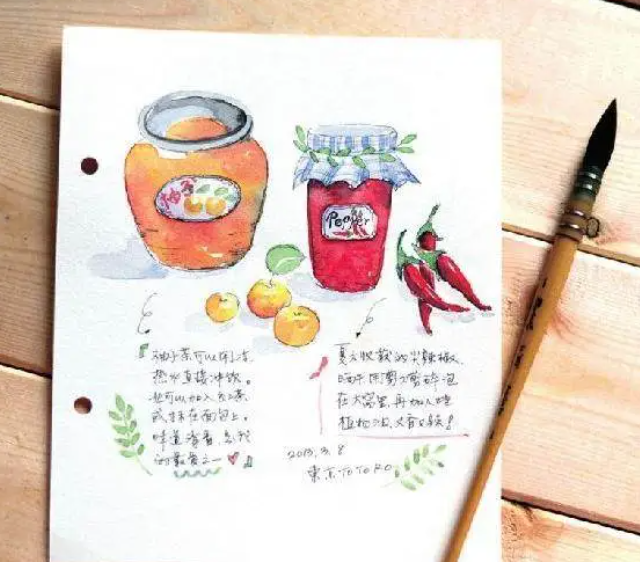 柚子
Pepper
柚子茶可以用冷
热水直接冲饮。
也可以加入红茶
或抹在面包上。
味道清香
的最爱之一
夏天收获的尖辣椒
晒干 用剪刀剪碎泡
在大 里,再加入
植物油,又香又辣!
2013.3.8
東京TOTORO